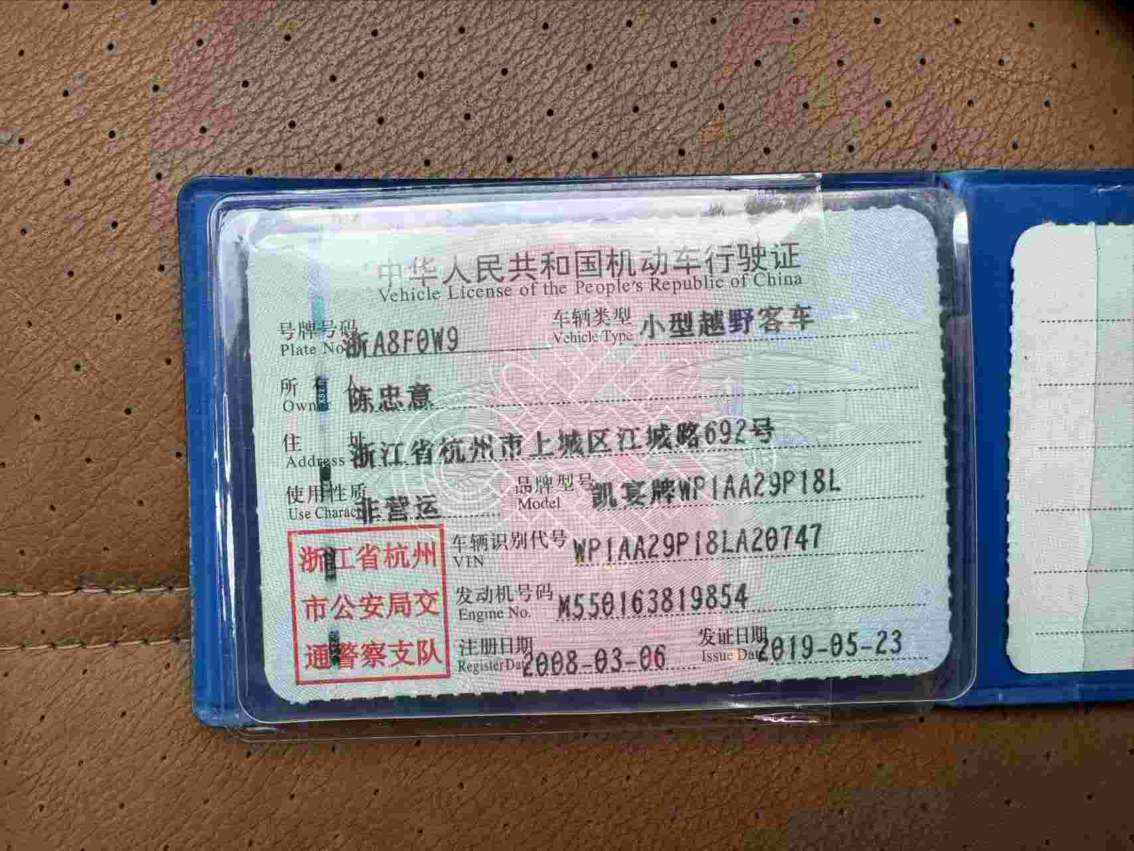 中华人民共和国机动车行驶证
Vehicle License of the People's Republic of China
号牌号码 浙A8F0W9 车辆类型 小型越野客车
Plate No. Vehicle Type
所有人 陈忠意
Owner
住址 浙江省杭州市上城区江城路692号
Address
使用性质 非营运 品牌型号 凯宴牌WP1AA29P18L
Use Character Model
浙江省杭州 车辆识别代号 WP1AA29P18LA20747
VIN
市公安局交 发动机号码 M550163819854
Engine No.
通警察支队 注册日期 2008-03-06 发证日期 2019-05-23
Register Date Issue Date